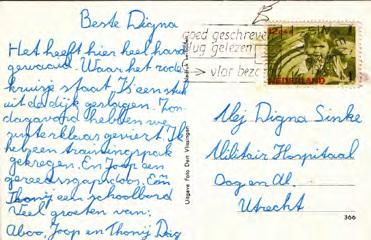 Beste Digna
Het heeft hier heel hard
gewaaid. Waar het rode
kruisje staat. Is een stuk
uit de dijk geslagen. Zon-
dagavond hebben we
sinterklaas gevierd. Ik
heb een trainingspak
gekregen. En Joop een
gereedschapsdoos. En
Thonij een schoolbord
Veel groeten van:
Abco, Joop en Thonij
goed geschreven
vlug gelezen
vlot bezo
12
NEDERLAND
Uitgave Foto Dert Vlissingen
Mej Digna Sinke
Militair Hospitaal
Oog en Al.
Utrecht
366